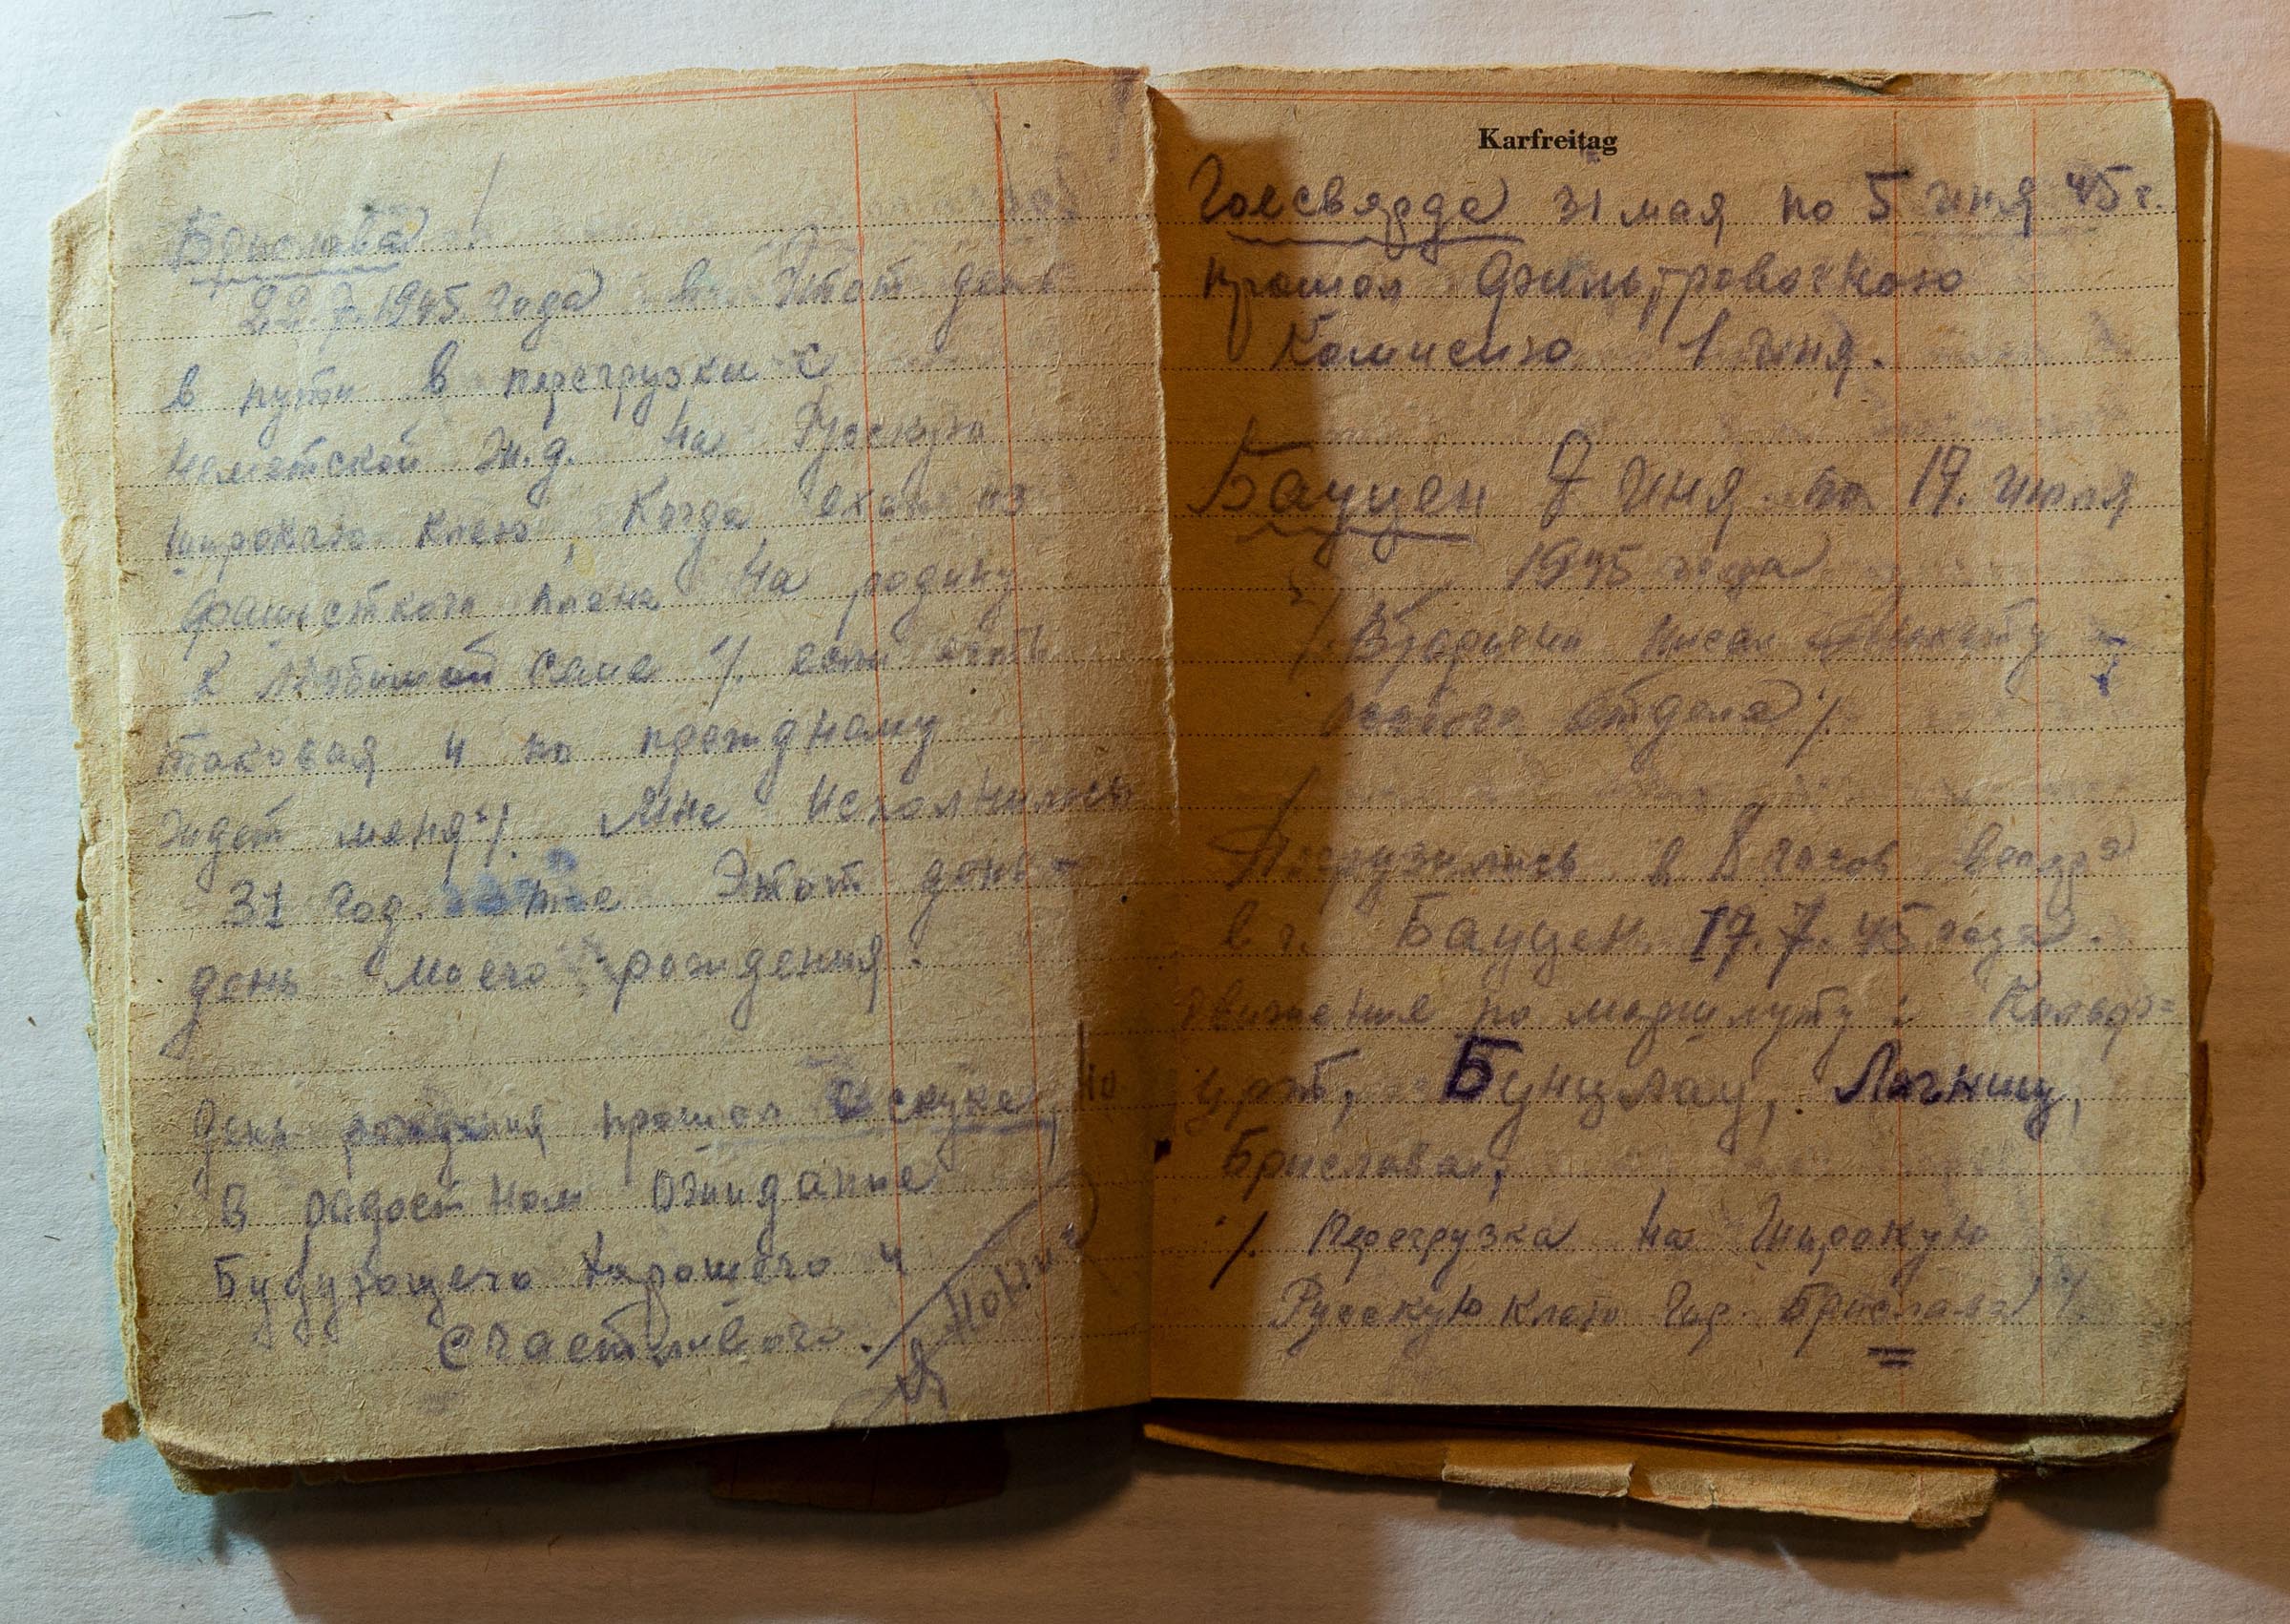 Бриславa
22.7.1945. года в Этот день
в пути в перегрузки с
Неметской Ж.д. На Рускую
широкаю клею, Когда ехал из
фашисткого плена На родину
К Любимой семе ./. если есть
таковая и по прежднему
ждет меня ./. Мне исполнилось
31 год. Этот день-
день моего рождения.
День рождения прошол в скуке, но
В радостном ожидание
Будующего Хорошего и
Счастливого.
Я
Karfreitag
Гоесвярде 31 мая по 5 иня 45 г.
прошол Фильтровочною
Комисию 1 иня.
Бауцен 7 иня по 17. июля
1945 года
./. Вторично писал анкету
отдела ./.
Погрузились в 8 часов вечера
в г. Бауцен. 17.7.45 года.
движение по маршруту: Кольф=
урт, Бунцлау, Лигниц,
Бриславa,
./. Перегрузка на Широкую
Русскую клею гор. Бриславa ./.